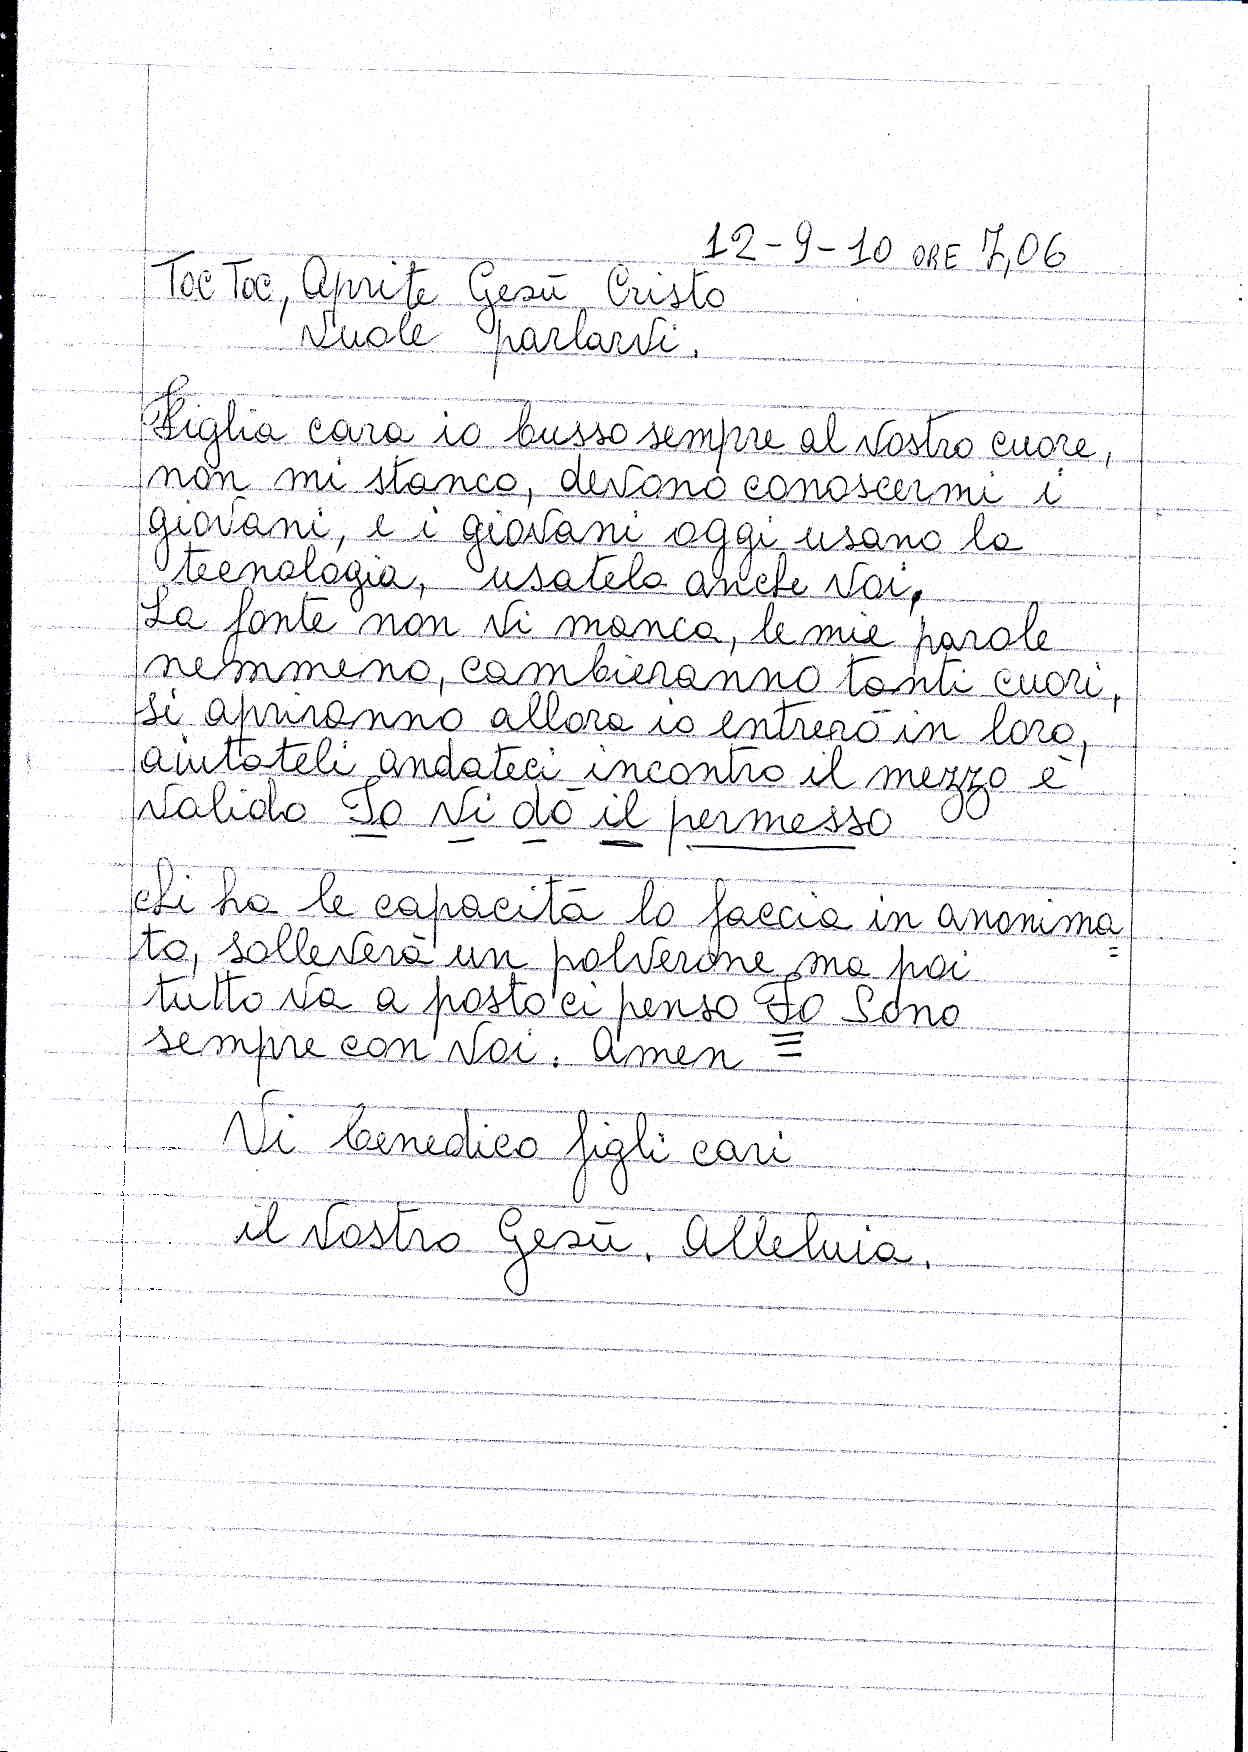 12-9-10 ORE 7,06
Toc Toc, Aprite Gesù Cristo
vuole parlarvi.
Figlia cara io busso sempre al vostro cuore,
non mi stanco, devono conoscermi i
giovani, e i giovani oggi usano la
tecnologia, usatela anche voi.
La fonte non vi manca, le mie parole
nemmeno, cambieranno tanti cuori,
si apriranno allora io entrerò in loro,
aiutateli andateci incontro il mezzo è
valido Io vi dò il permesso
chi ha le capacità lo faccia in anonima
to, solleverà un polverone ma poi
tutto va a posto ci penso Io Sono
sempre con voi. Amen
Vi benedico figli cari
il vostro Gesù. Alleluia.